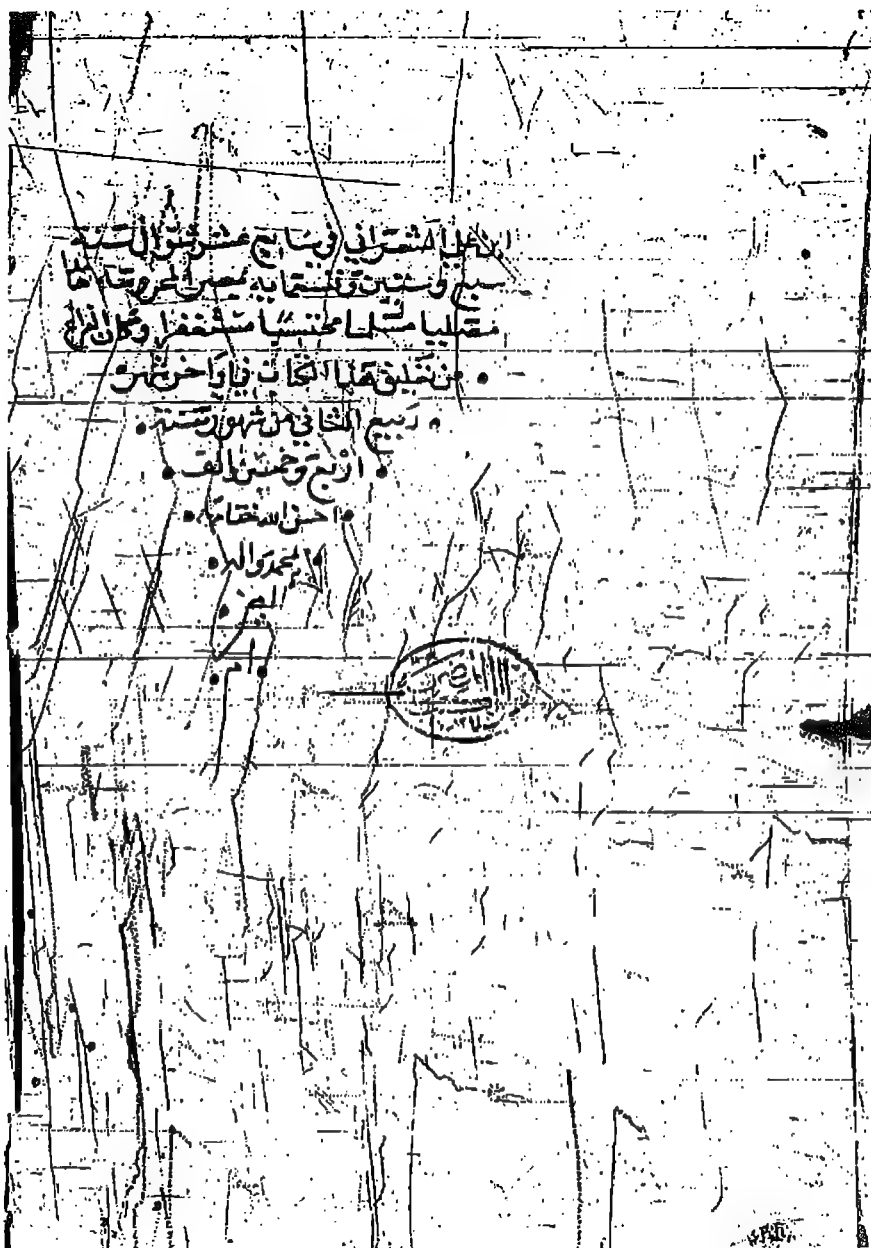 ابن علي الشعراني في سابع عشر شوال سنة
سبع وستين وتسعمايه بمصر المحروسة حامدا
مصليا مسلما محتسبا مستغفرا وكان الفراغ
من تعليق هذا الكتاب في اواخر شهر
ربيع الثاني من شهور سنة
اربع وخمسين والف
احسن الله ختامها
بمحمد واله
امين